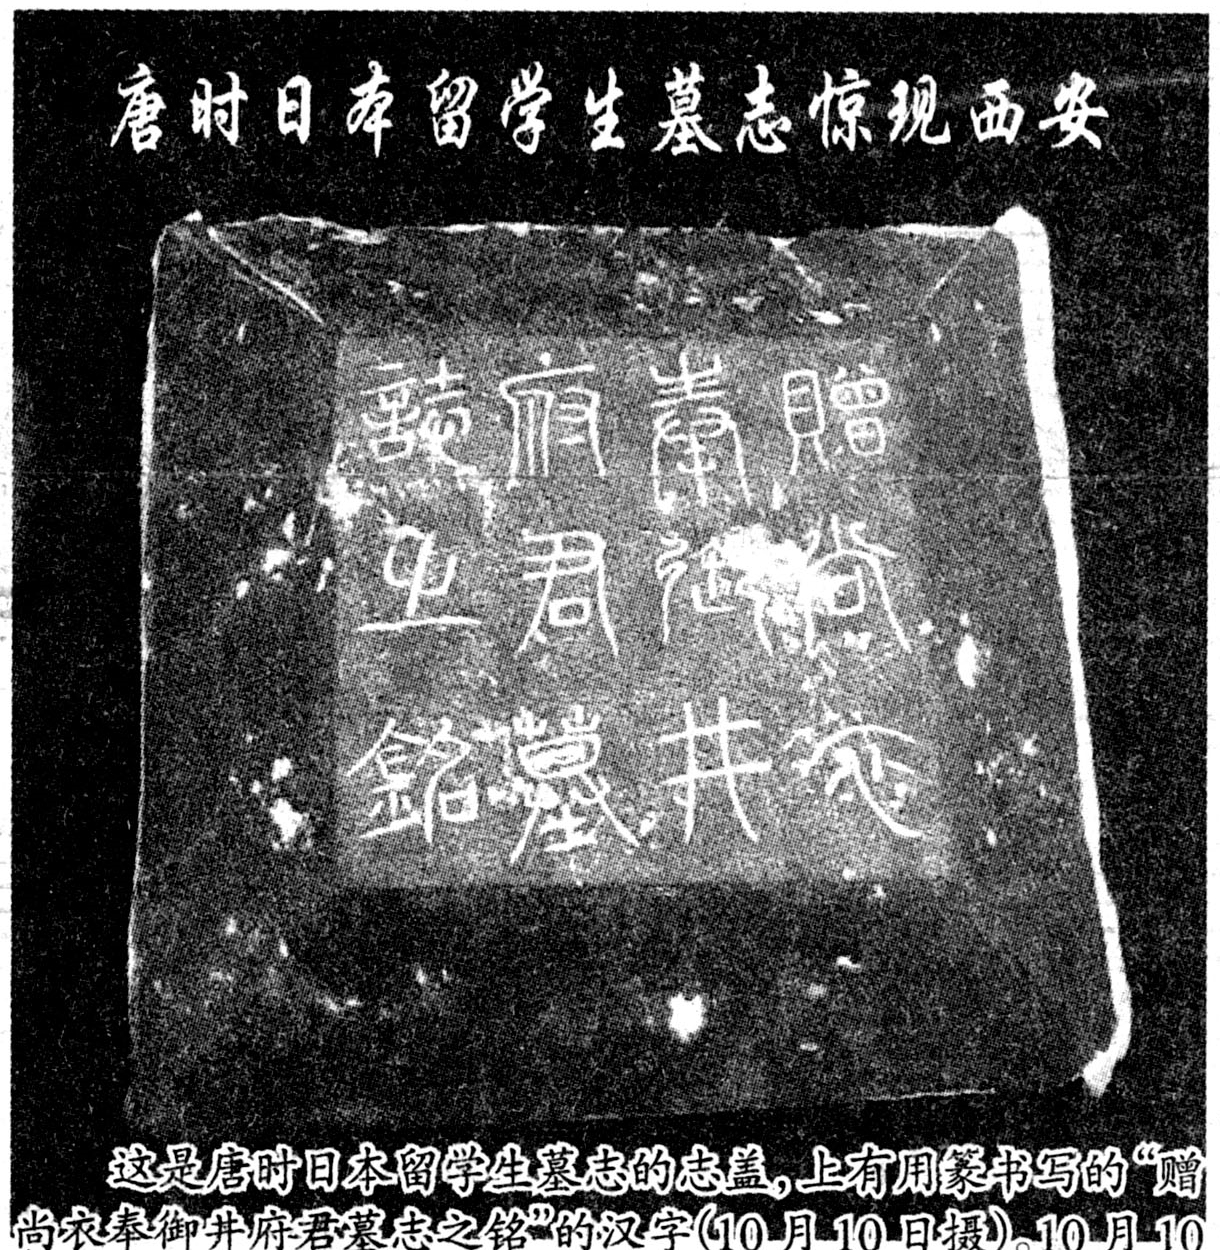 唐时日本留学生墓志惊现西安
贈尚衣
奉御井
府君墓
誌之銘
这是唐时日本留学生墓志的志盖，上有用篆书写的“赠
尚衣奉御井府君墓志之铭”的汉字(10月10日摄)。10月10